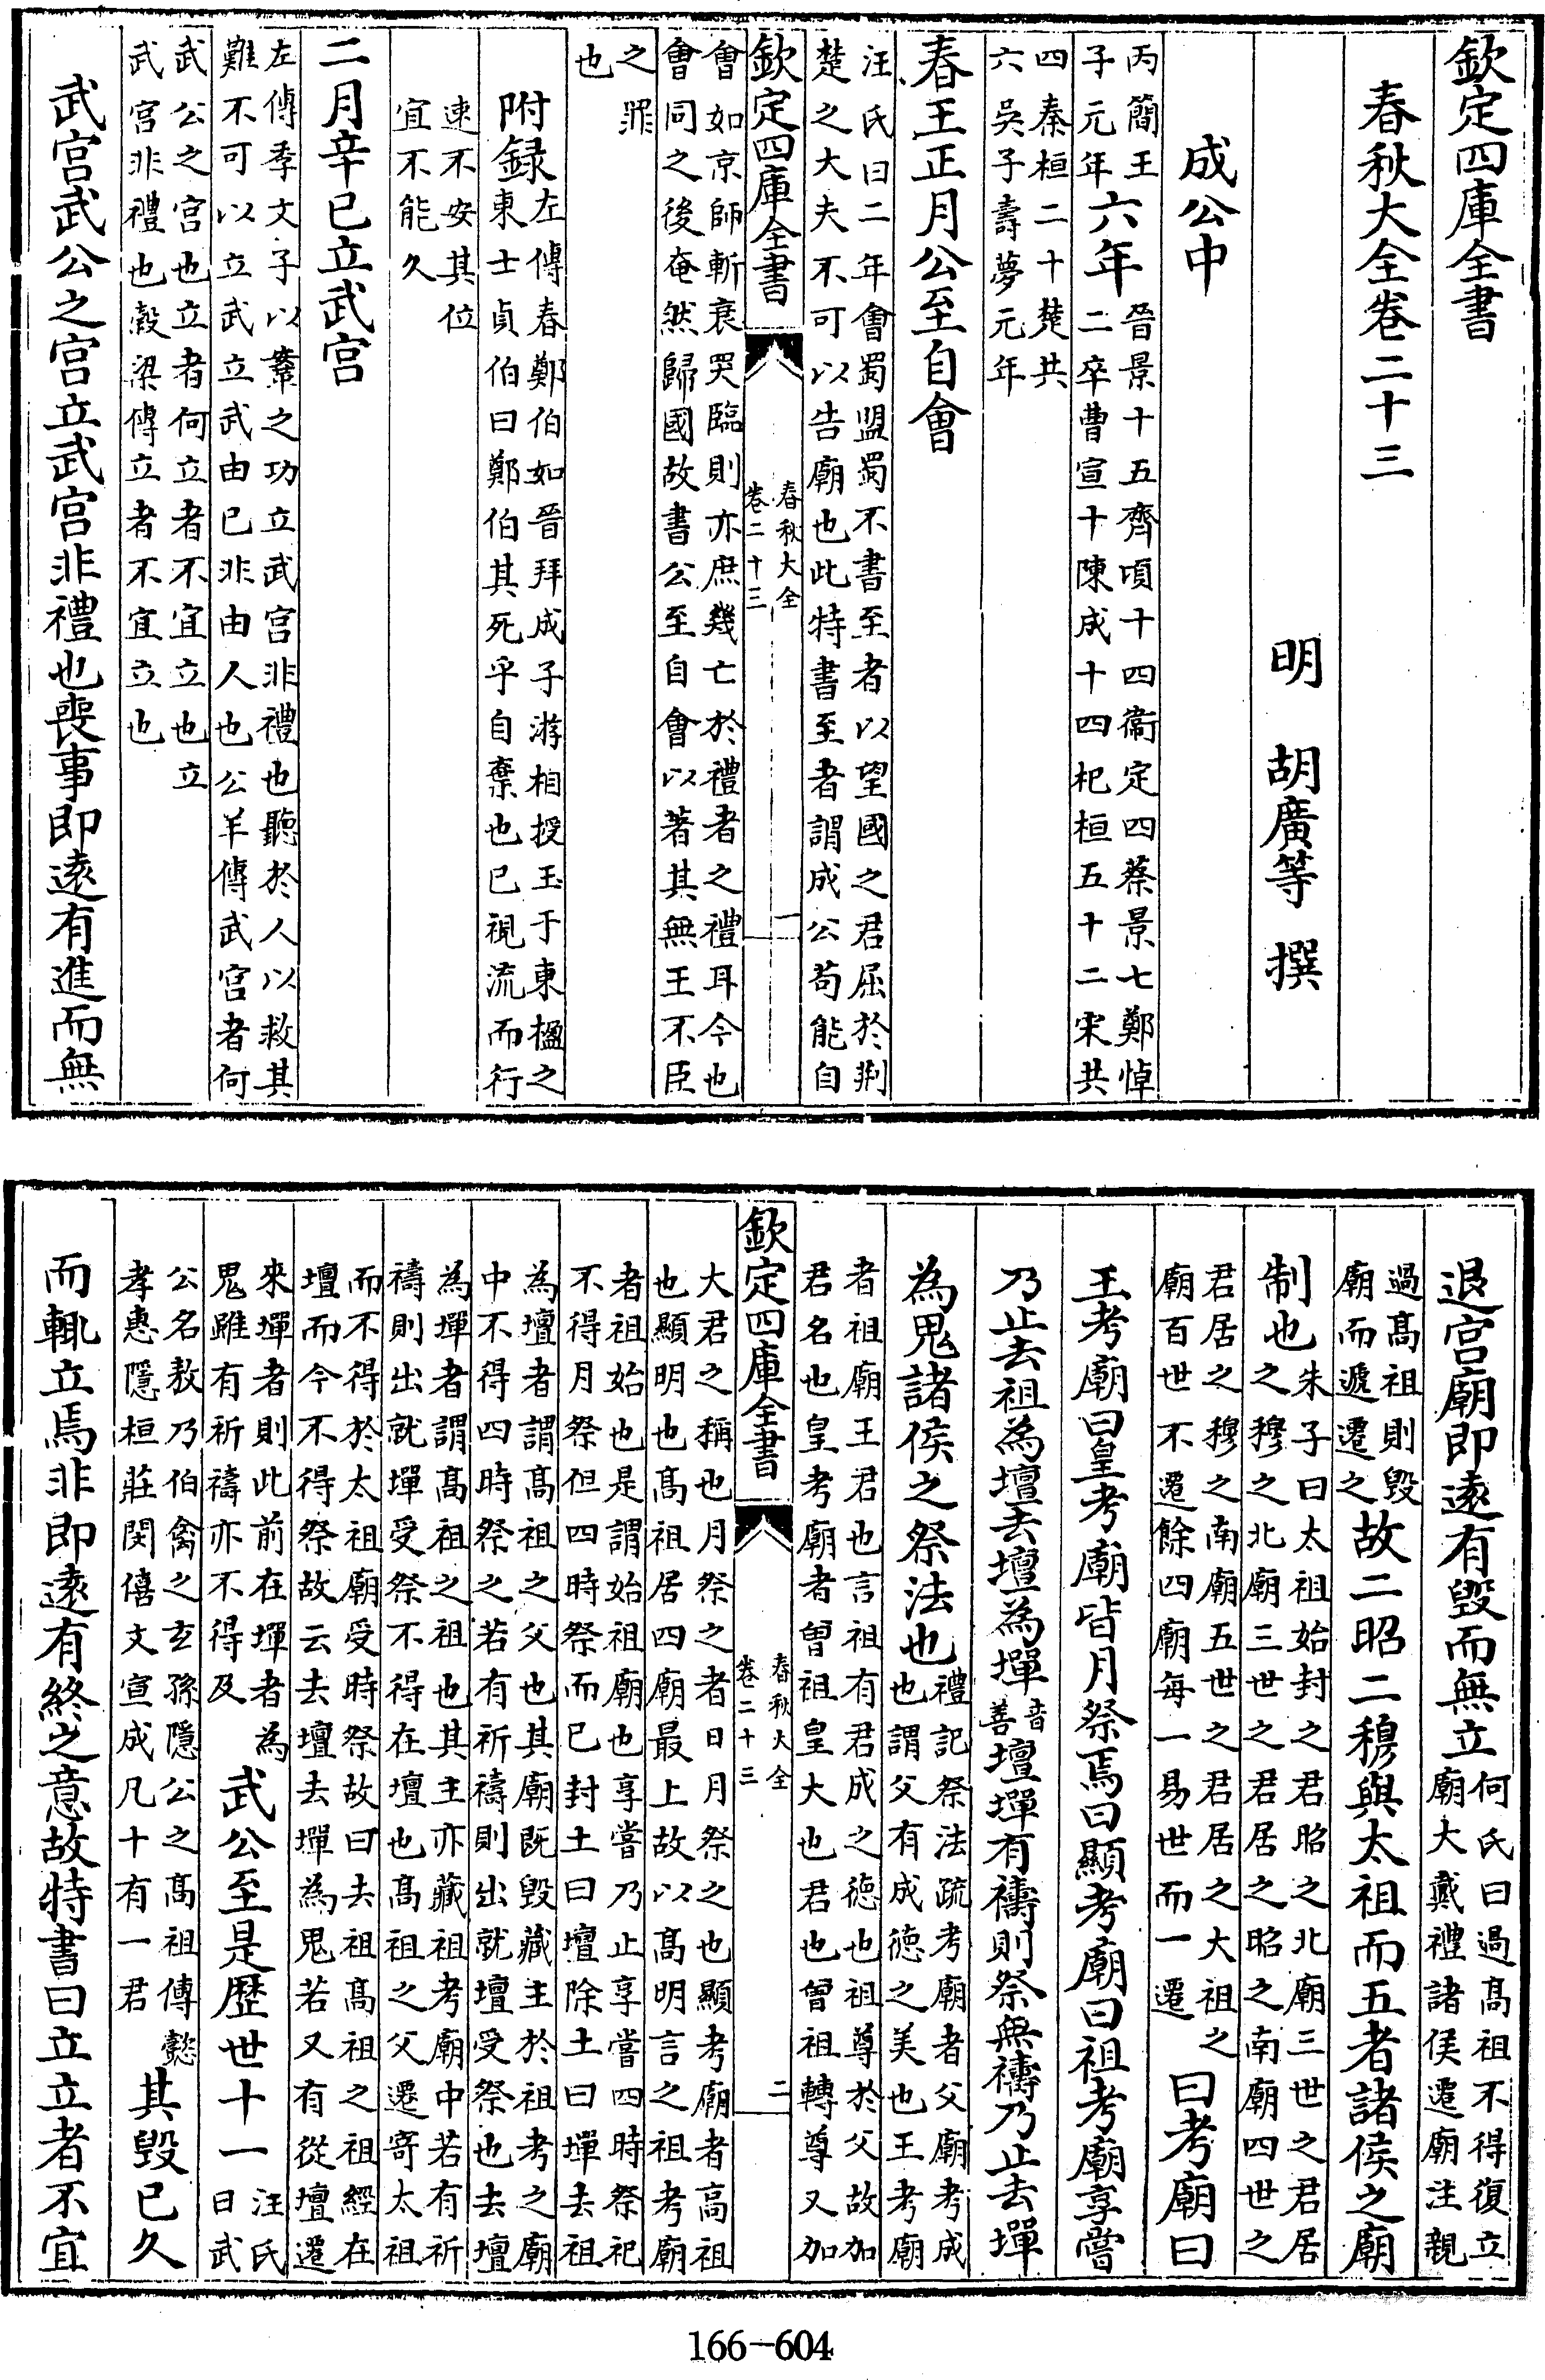 欽定四庫全書
春秋大全卷二十三
明　胡廣等　撰
成公中
丙簡王
子元年
六年
晉景十五齊頃十四衞定四蔡景七鄭悼
二卒曹宣十陳成十四杞桓五十二宋共
四秦桓二十楚共
六吳子壽夢元年
春王正月公至自會
汪氏曰二年會蜀盟蜀不書至者以望國之君屈於荆
楚之大夫不可以告廟也此特書至者謂成公苟能自
欽定四庫全書
春秋大全
卷二十三
一
會如京師斬衰哭臨則亦庶幾亡於禮者之禮耳今也
會同之後奄然歸國故書公至自會以著其無王不臣
之罪
也
附録
左傳春鄭伯如晉拜成子游相授玉于東楹之
東士貞伯曰鄭伯其死乎自棄也已視流而行
速不安其位
宜不能久
二月辛巳立武宫
左傳季文子以鞌之功立武宫非禮也聽於人以救其
難不可以立武立武由已非由人也公羊傳武宫者何
武公之宫也立者何立者不宜立也立
武宫非禮也榖梁傳立者不宜立也
武宫武公之宫立武宫非禮也喪事即逺有進而無
退宫廟即逺有毁而無立
何氏曰過髙祖不得復立
廟大戴禮諸侯遷廟注親
過髙祖則毁
廟而遞遷之
故二昭二穆與太祖而五者諸侯之廟
制也
朱子曰太祖始封之君昭之北廟三世之君居
之穆之北廟三世之君居之昭之南廟四世之
君居之穆之南廟五世之君居之大祖之
廟百世不遷餘四廟每一易世而一遷
曰考廟曰
王考廟曰皇考廟皆月祭焉曰顯考廟曰祖考廟享嘗
乃止去祖為壇去壇為墠
音
善
壇墠有禱則祭無禱乃止去墠
為鬼諸侯之祭法也
禮記祭法疏考廟者父廟考成
也謂父有成德之美也王考廟
者祖廟王君也言祖有君成之德也祖尊於父故加
君名也皇考廟者曽祖皇大也君也曽祖轉尊又加
欽定四庫全書
春秋大全
卷二十三
二
大君之稱也月祭之者日月祭之也顯考廟者高祖
也顯明也髙祖居四廟最上故以髙明言之祖考廟
者祖始也是謂始祖廟也享嘗乃止享嘗四時祭祀
不得月祭但四時祭而已封土曰壇除土曰墠去祖
為壇者謂髙祖之父也其廟既毁藏主於祖考之廟
中不得四時祭之若有祈禱則出就壇受祭也去壇
為墠者謂髙祖之祖也其主亦藏祖考廟中若有祈
禱則出就墠受祭不得在壇也髙祖之父遷寄太祖
而不得於太祖廟受時祭故曰去祖髙祖之祖經在
壇而今不得祭故云去壇去墠為鬼若又有從壇遷
來墠者則此前在墠者為
鬼雖有祈禱亦不得及
武公至是歴世十一
汪氏
曰武
公名敖乃伯禽之玄孫隱公之髙祖傳懿
孝惠隱桓莊閔僖文宣成凡十有一君
其毁已久
而輒立焉非即逺有終之意故特書曰立立者不宜
166-604